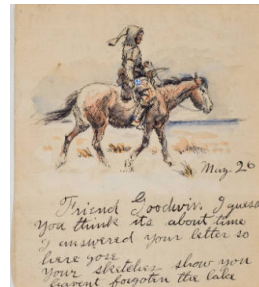 May. 26
Friend Goodwin. I guess
you think its about time
I answered your letter so
here gose
Your sketches show you
havent forgotten the lake